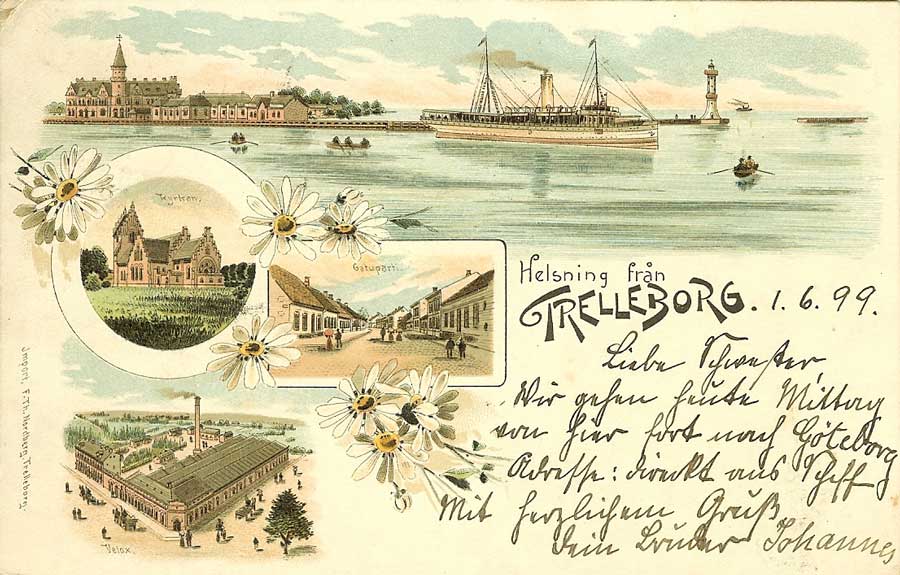 Kyrkan.
Gatuparti.
Helsning från
TRELLEBORG. 1. 6. 99.
Liebe Schwester,
Wir gehen heute Mittag
von hier fort nach Göteborg
Adresse: direckt aus Schiff
Mit herzlichem Gruß
Dein Bruder Johannes
Velox.
Import. F. Th. Nordberg, Trelleborg.